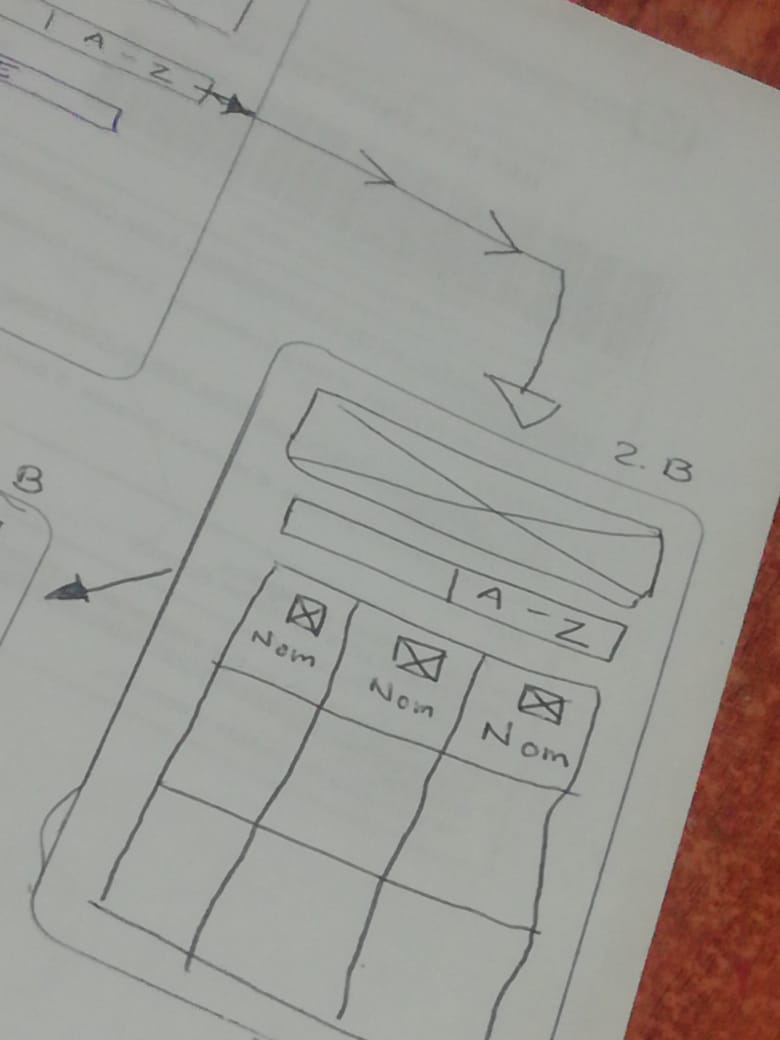 A - Z
E
2. B
B
A - Z
Nom
Nom
Nom